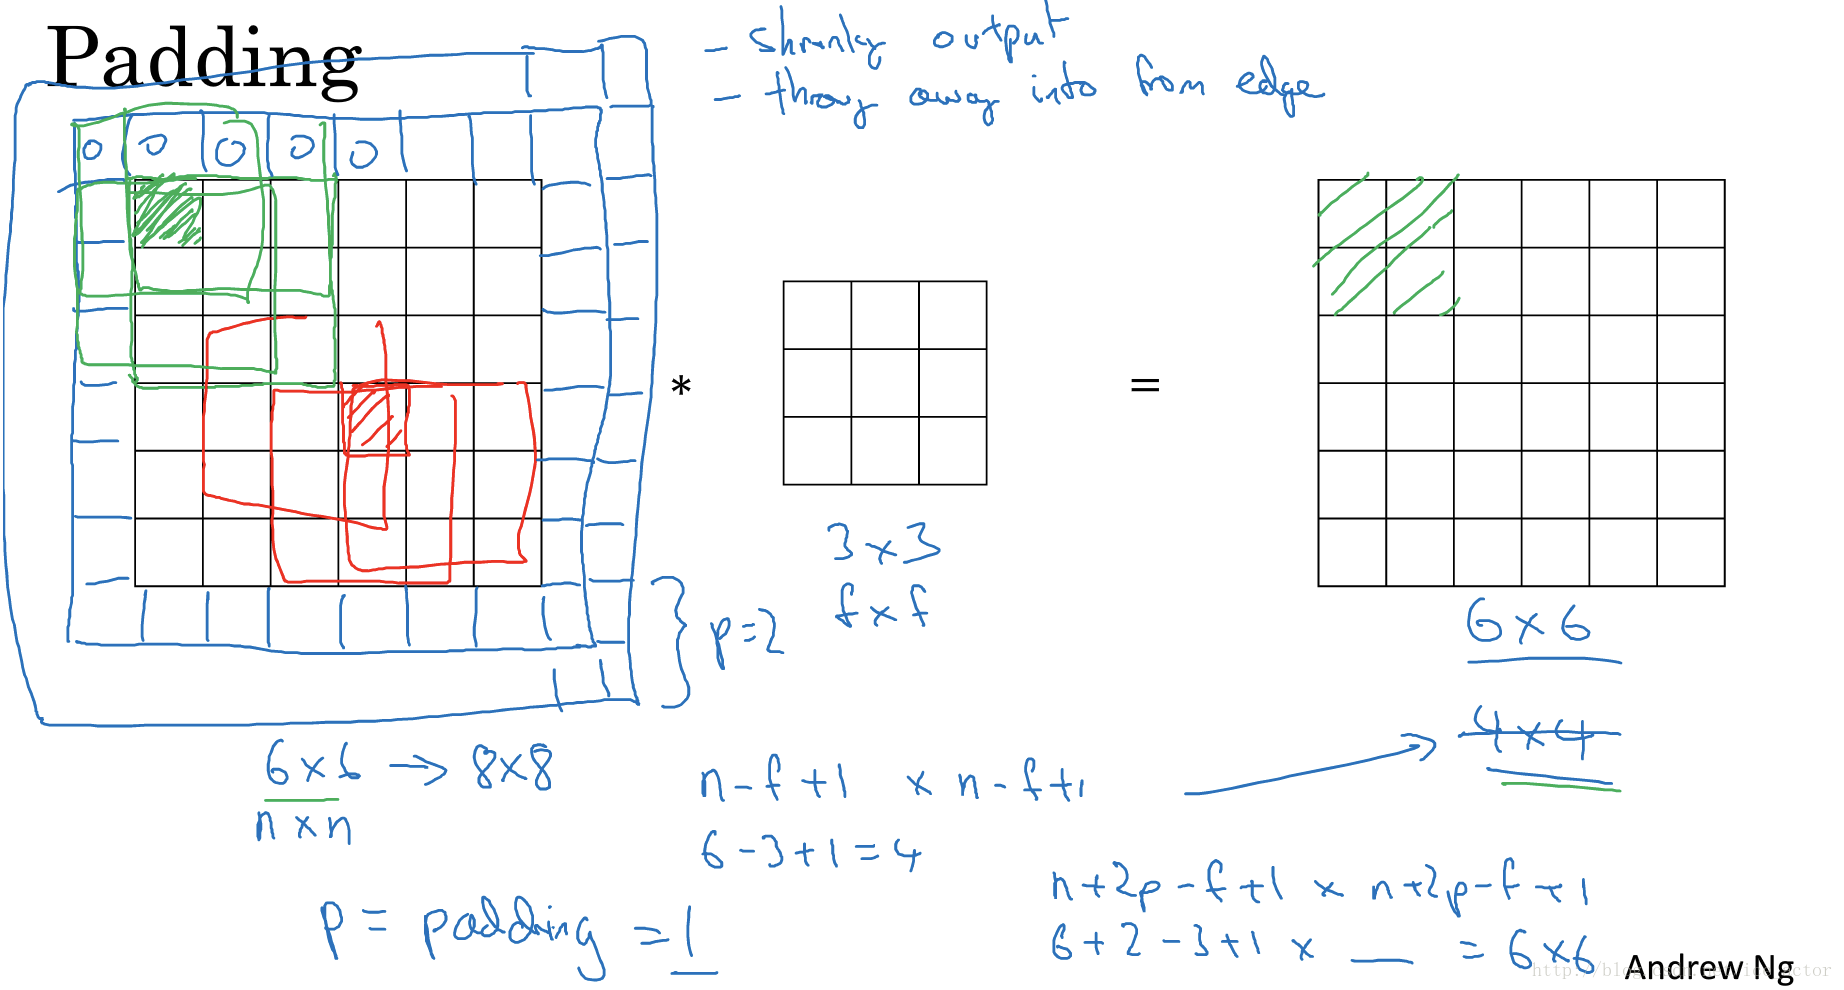 Padding
- shrinky output
- throw away info from edge
0 0 0 0 0
*
=
3 x 3
f x f
p=2
6 x 6
4 x 4
6 x 6 → 8 x 8
n x n
n - f + 1 x n - f + 1
6 - 3 + 1 = 4
p = padding = 1
n+2p-f+1 x n+2p-f+1
6+2-3+1 x __ = 6x6
Andrew Ng